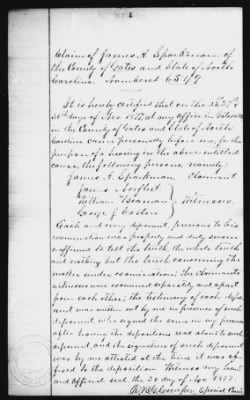 Claim of James A. Sparkman, of
the County of Gates and State of North
Carolina. Numbered 6547
It is hereby certified that on the
days of Nov 1877, at my office in
in the County of Gates and State of North
Carolina came personally before me for the
purpose of a hearing in the above entitled
cause, the following persons, namely:
James A. Sparkman, Claimant
James Norfleet
William Beaman } Witnesses.
George J. Costen
Each and every deponent, previous to his
examination was properly and duly sworn or
affirmed to tell the truth, the whole truth
and nothing but the truth concerning the
matter under examination; the Claimants
witnesses were examined separately and apart
from each other; the testimony of each depo
nent was written out by me in presence of such
deponent, who signed the same in my presence
after having the deposition read aloud to such
deponent, and the signature of such deponent
was by me attested at the time it was af-
fixed to the deposition. Witness my hand
and official seal, the 30 day of Nov. 1877.
Special Com'r